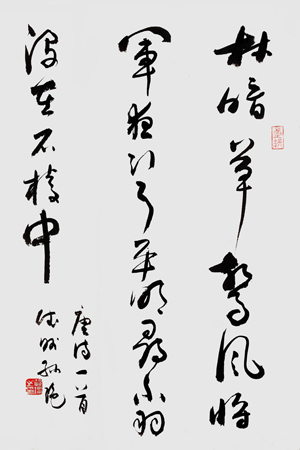 林暗草驚風將
軍夜引弓平明尋白羽
没在石棱中
唐詩一首